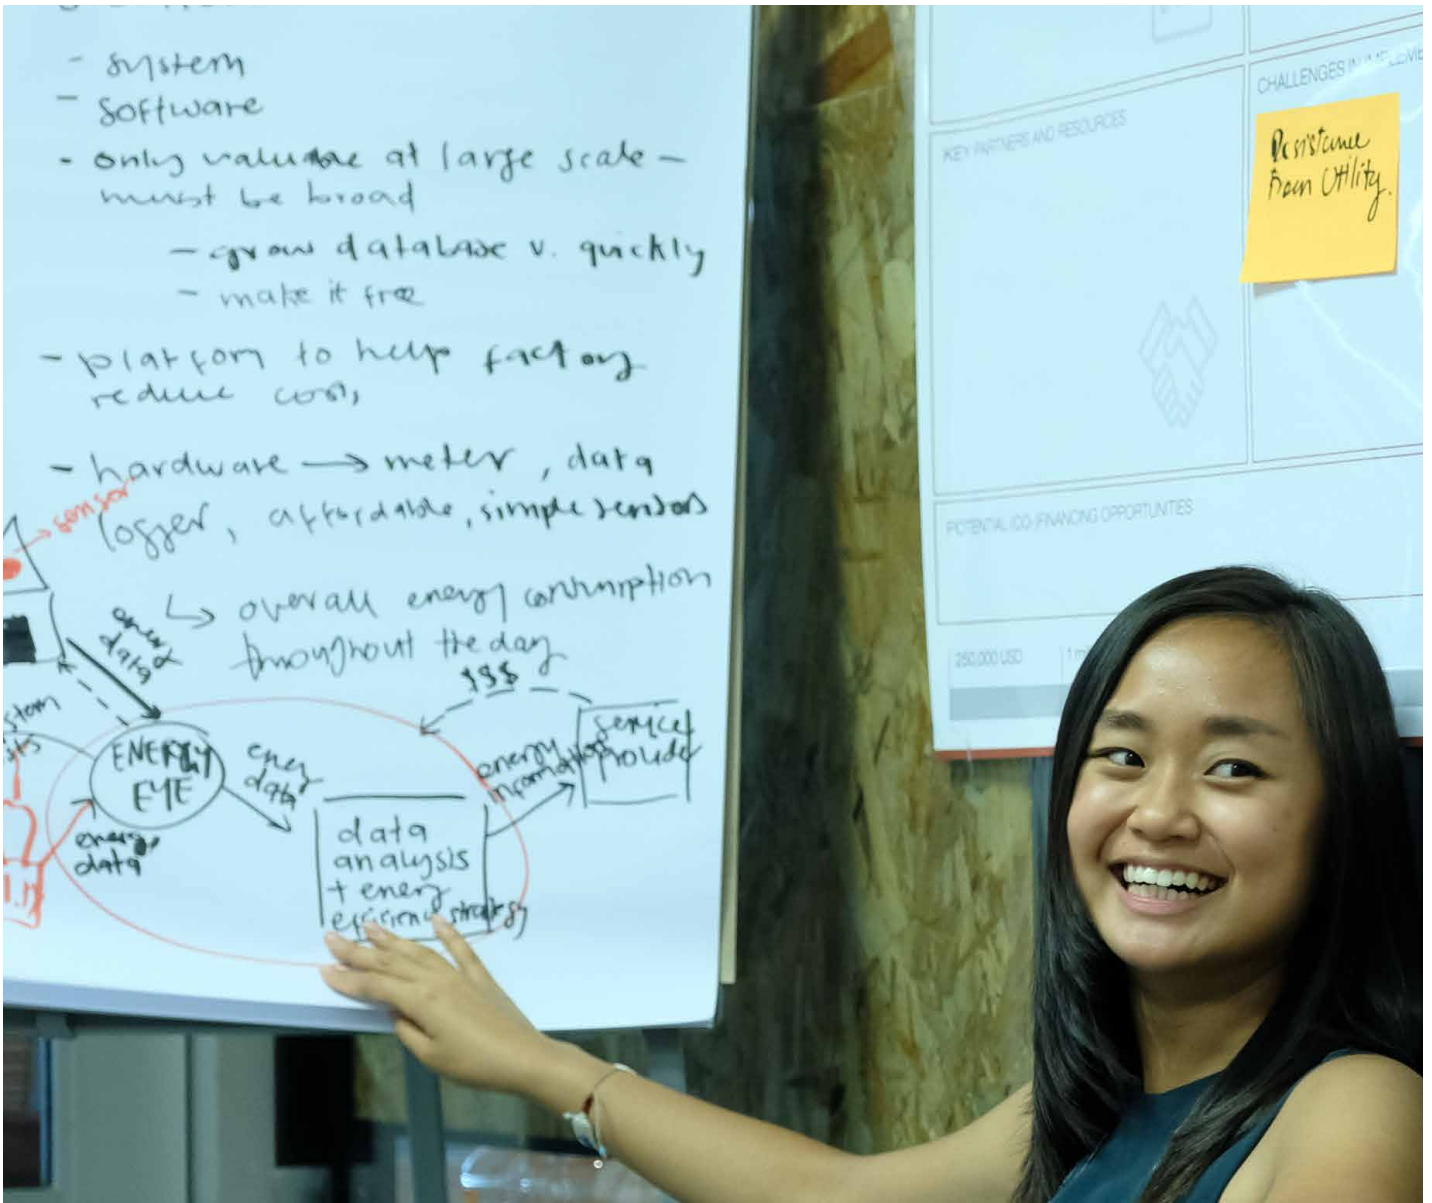 - system
- software
- only valuable at large scale -
must be broad
- grow database v. quickly
- make it free
- platform to help factory
reduce costs
- hardware → meter, data
logger, affordable, simple sensors
→ sensor
↳ overall energy consumption
throughout the day
energy
data
$$$
ENERGY
EYE
energy
data
energy
data
data
analysis
+ energy
efficiency strategy
energy
information
service
provider
KEY PARTNERS AND RESOURCES
CHALLENGES IN
Resistance
from Utility.
POTENTIAL (CO-)FINANCING OPPORTUNITIES
250,000 USD